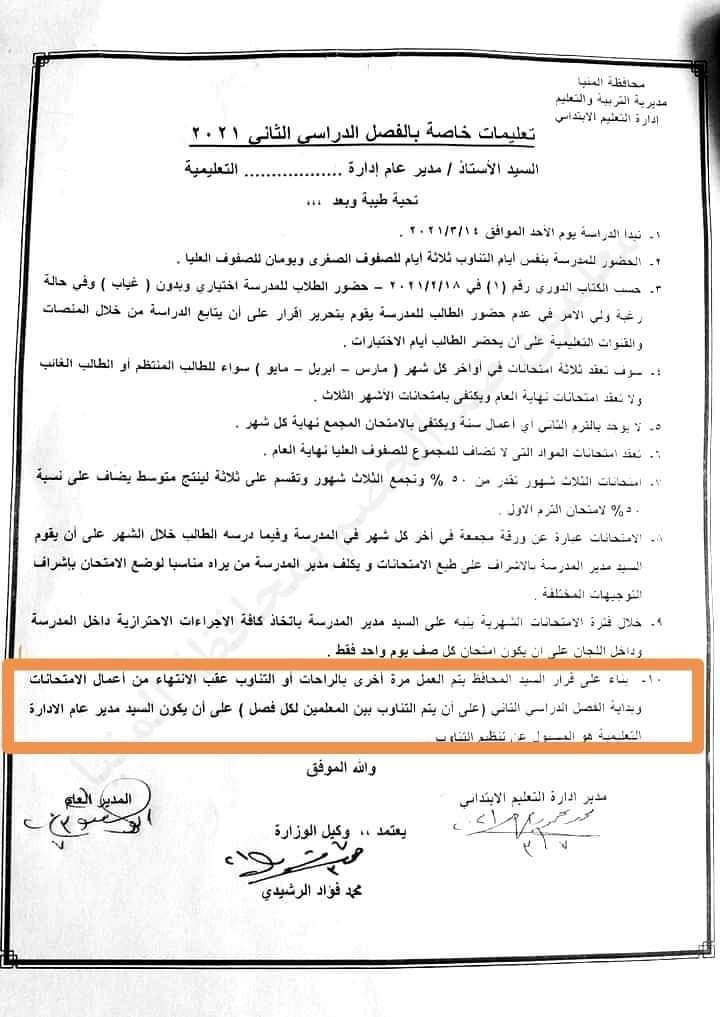 محافظة المنيا
مديرية التربية والتعليم
إدارة التعليم الابتدائي
تعليمات خاصة بالفصل الدراسي الثاني ٢٠٢١
السيد الأستاذ / مدير عام إدارة .................. التعليمية
تحية طيبة وبعد ،،،
١- تبدأ الدراسة يوم الاحد الموافق ٢٠٢١/٣/١٤ .
٢- الحضور للمدرسة بنفس أيام التناوب ثلاثة أيام للصفوف الصغرى ويومان للصفوف العليا .
٣- حسب الكتاب الدوري رقم (١) في ٢٠٢١/٢/١٨ – حضور الطلاب للمدرسة اختياري وبدون ( غياب ) وفي حالة
رغبة ولي الامر في عدم حضور الطالب للمدرسة يقوم بتحرير اقرار على أن يتابع الدراسة من خلال المنصات
والقنوات التعليمية على أن يحضر الطالب أيام الاختبارات .
٤- سوف تعقد ثلاثة امتحانات في أواخر كل شهر ( مارس – ابريل – مايو ) سواء للطالب المنتظم أو الطالب الغائب
ولا تعقد امتحانات نهاية العام ويكتفى بامتحانات الأشهر الثلاث .
٥- لا يوجد بالترم الثاني أي أعمال سنة ويكتفى بالامتحان المجمع نهاية كل شهر .
٦- تعقد امتحانات المواد التي لا تضاف للمجموع للصفوف العليا نهاية العام .
٧- امتحانات الثلاث شهور تقدر من ٥٠ % وتجمع الثلاث شهور وتقسم على ثلاثة لينتج متوسط يضاف على نسبة
٥٠% لامتحان الترم الاول .
٨- الامتحانات عبارة عن ورقة مجمعة في أخر كل شهر في المدرسة وفيما درسه الطالب خلال الشهر على أن يقوم
السيد مدير المدرسة بالاشراف على طبع الامتحانات و يكلف مدير المدرسة من يراه مناسبا لوضع الامتحان بإشراف
التوجيهات المختلفة .
٩- خلال فترة الامتحانات الشهرية ينبه على السيد مدير المدرسة باتخاذ كافة الاجراءات الاحترازية داخل المدرسة
وداخل اللجان على ان يكون امتحان كل صف يوم واحد فقط .
١٠- بناء على قرار السيد المحافظ يتم العمل مرة أخرى بالراحات أو التناوب عقب الانتهاء من أعمال الامتحانات
وبداية الفصل الدراسي الثاني (على أن يتم التناوب بين المعلمين لكل فصل ) على أن يكون السيد مدير عام الادارة
التعليمية هو المسئول عن تنظيم التناوب
والله الموفق
مدير ادارة التعليم الابتدائي
المدير العام
يعتمد ،، وكيل الوزارة
محمد فؤاد الرشيدي